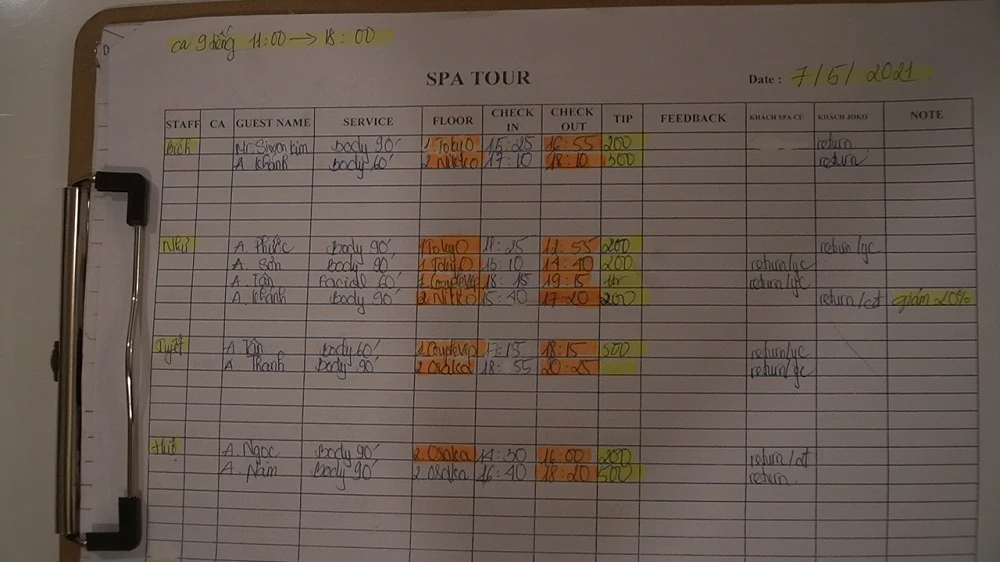 ca 9 tiếng 11:00 → 18:00
SPA TOUR
Date : 7/5/2021
STAFF CA GUEST NAME SERVICE FLOOR CHECK IN CHECK OUT TIP FEEDBACK KHÁCH SPA CŨ KHÁCH JOKO NOTE
Bích Mr Simon Kim Body 90' 1 Tokyo 15:25 16:55 200 return
A Khánh Body 60' 2. Nikko 17:10 18:10 500 return
Như A. Phước Body 90' 1 Tokyo 11:25 12:55 200 return/yc
A. Sơn Body 90' 1 Tokyo 13:10 14:40 200 return/yc
A. Tân Facial 60' 18:15 19:15 return/yc
A. Khánh Body 90' 2 Nikko 15:40 17:20 200 return/cđ giảm 20%
Tuyết A. Tân Body 60' 17:15 18:15 500 return/yc
A Thanh Body 90' 2 Osaka 18:55 20:25 return/yc
Huệ A. Ngọc Body 90' 2. Osaka 14:30 16:00 200 return/cđ
A. Nam Body 90' 2. Osaka 16:40 18:20 500 return